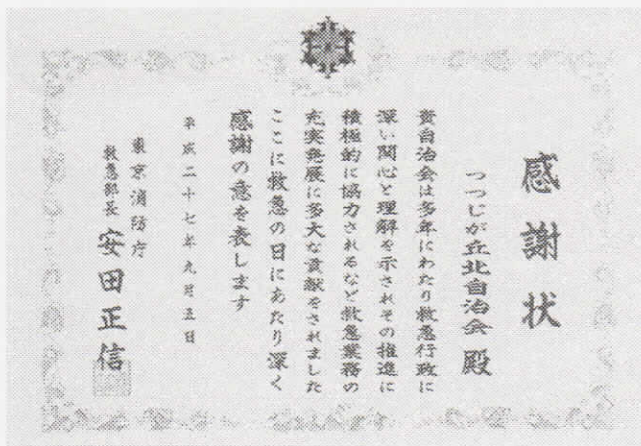 感謝状
つつじが丘北自治会 殿
貴自治会は多年にわたり救急行政に
深い関心と理解を示されその推進に
積極的に協力されるなど救急業務の
充実発展に多大な貢献をされました
ここに救急の日にあたり深く
感謝の意を表します
平成二十七年九月五日
東京消防庁
救急部長 安田正信